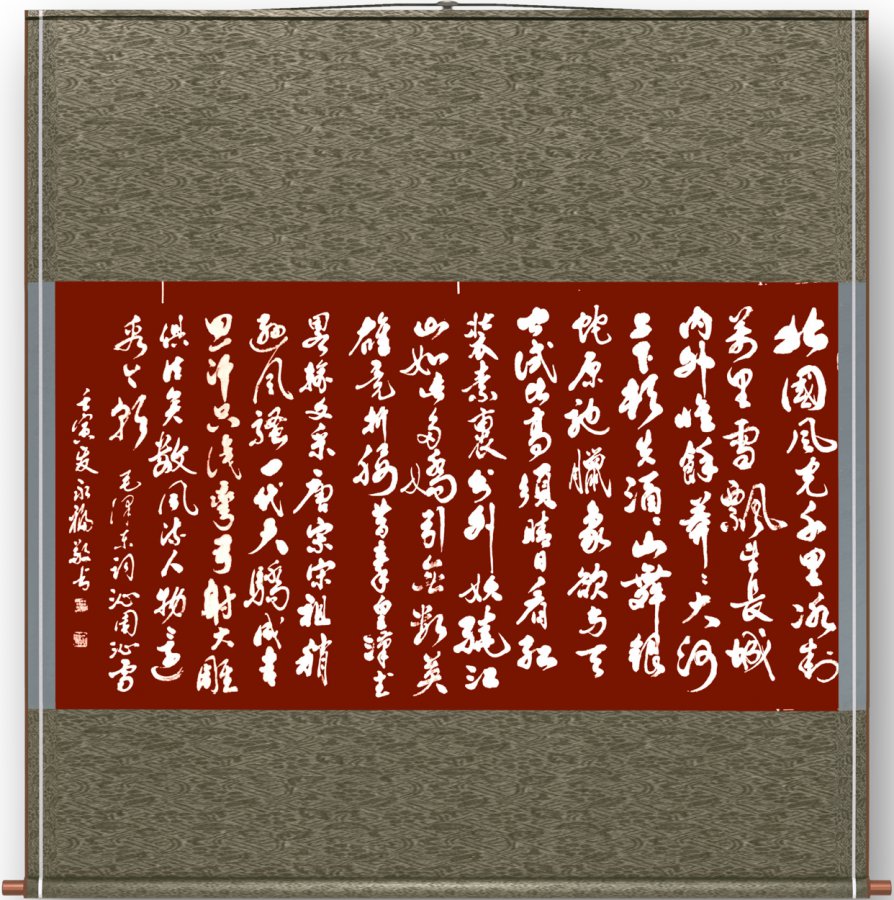 北國風光千里冰封
萬里雪飄望長城
内外惟餘莽〻大河
上下頓失滔〻山舞銀
蛇原馳臘象欲与天
公試比高須晴日看紅
裝素裹分外妖嬈江
山如此多嬌引無數英
雄竞折腰昔秦皇漢武
略輸文采唐宗宋祖稍
遜風騷一代天驕成吉
思汗只識彎弓射大雕
俱往矣數風流人物還
看今朝 毛澤东詞沁園春雪
壬寅夏永敬书